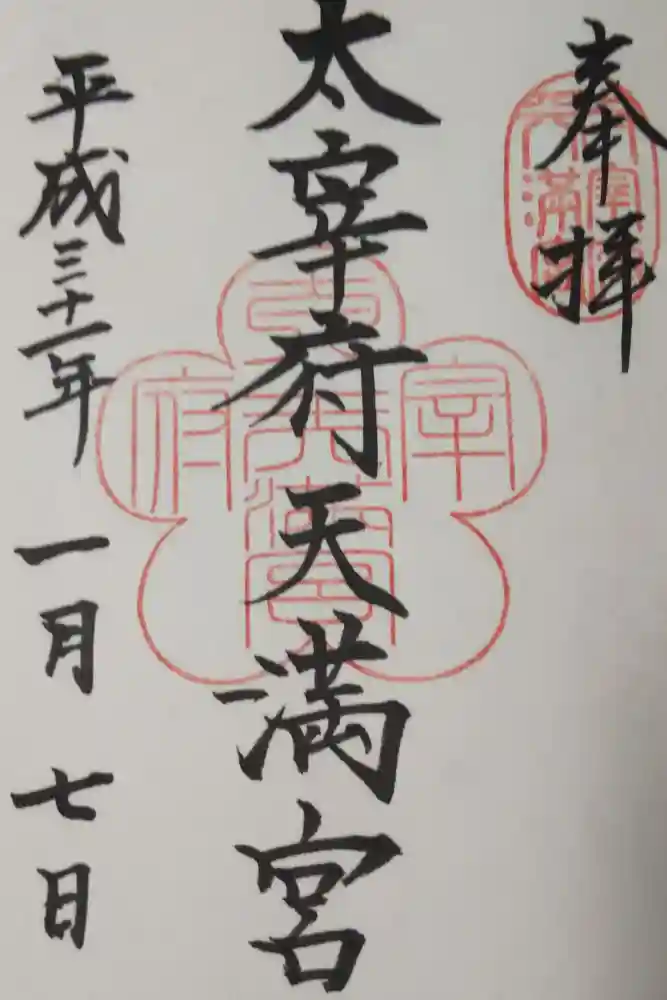 奉拝
太宰府天満宮
平成三十一年 一月 七日